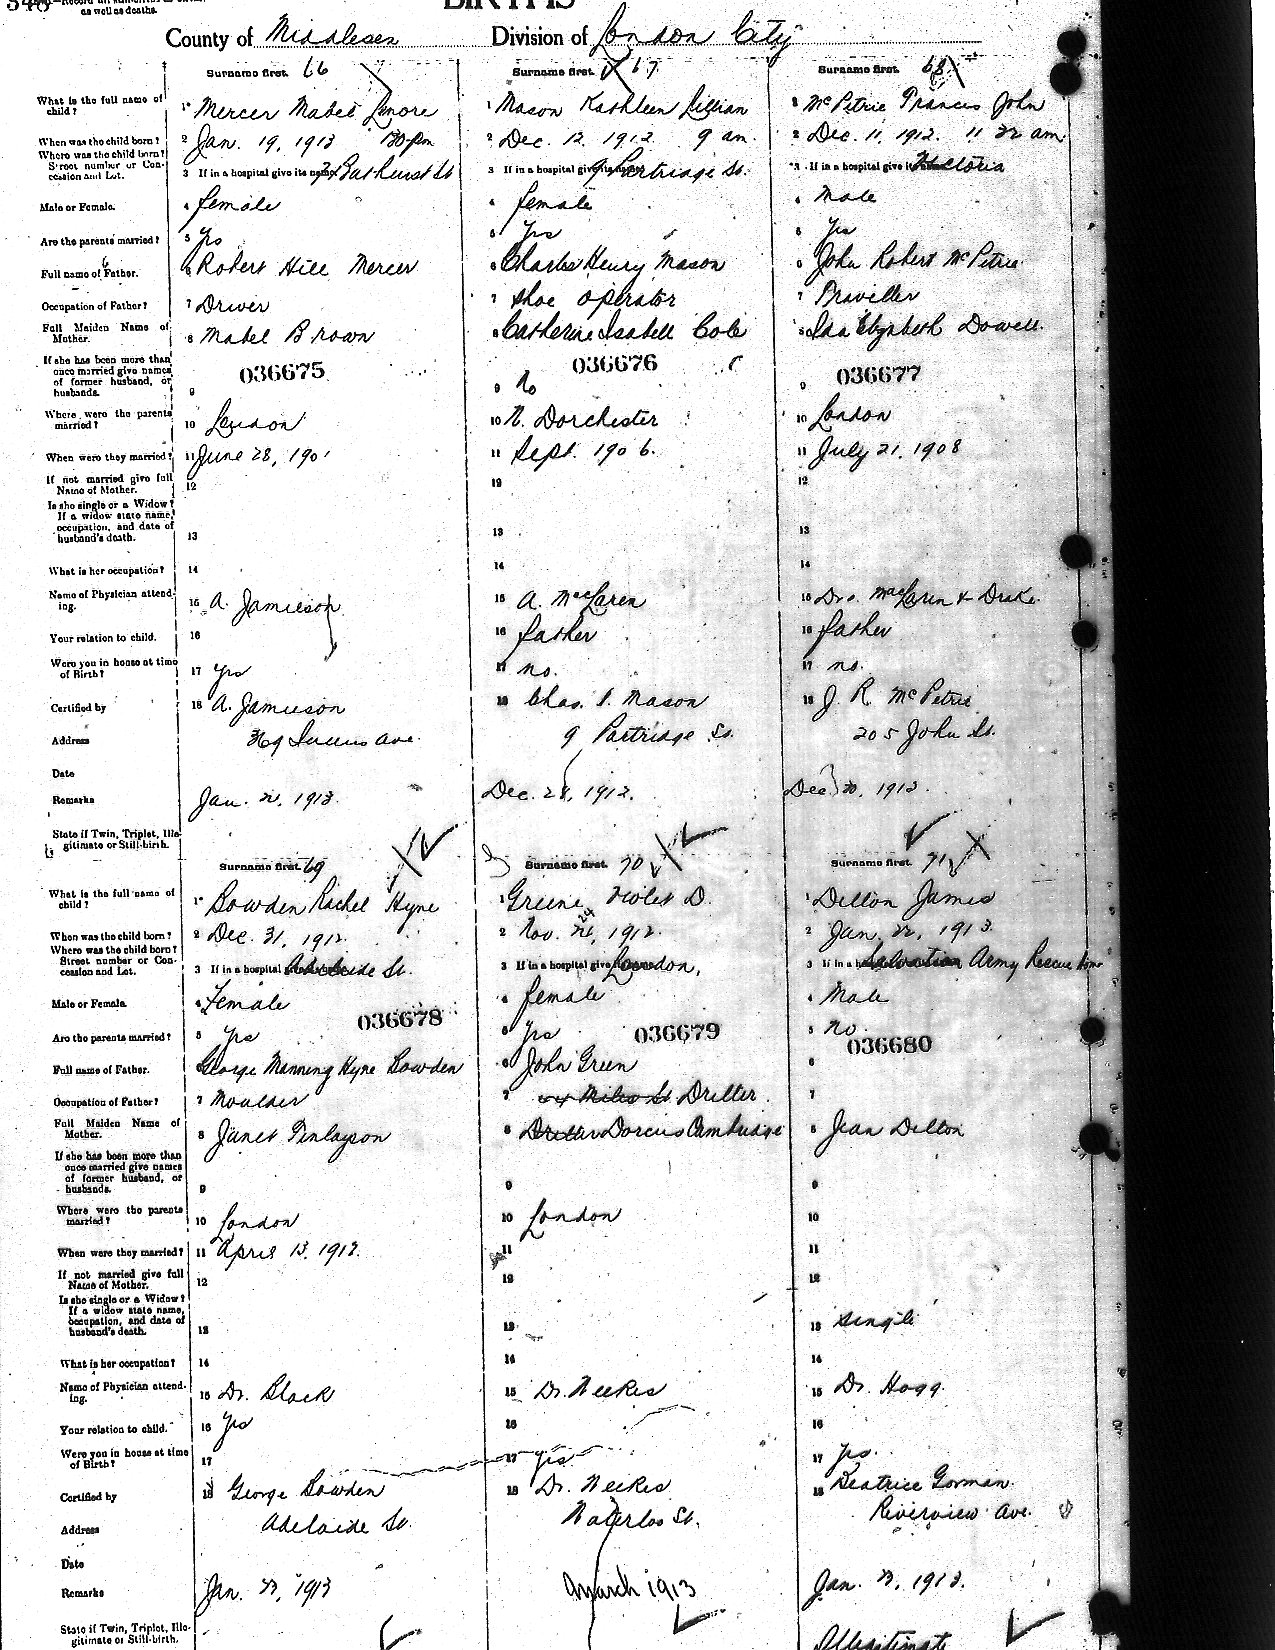 348
as well as deaths.
BIRTHS
County of Middlesex Division of London City
Surname first. 66 Surname first. 67 Surname first. 68
What is the full name of child? 1 Mercer Mabel Lenore 1 Mason Kathleen Lillian 1 McPetrie Francis John
When was the child born? 2 Jan. 19, 1913 1 30 pm 2 Dec. 12, 1912 9 am 2 Dec. 11, 1912. 11 32 am
Where was the child born? Street number or Concession and Lot. 3 If in a hospital give its name Bathurst St 3 If in a hospital give its name 9 Partridge St. 3 If in a hospital give its name Victoria
Male or Female. 4 female 4 female 4 Male
Are the parents married? 5 Yes 5 Yes 5 Yes
Full name of Father. 6 Robert Hill Mercer 6 Charles Henry Mason 6 John Robert McPetrie
Occupation of Father? 7 Driver 7 Shoe operator 7 Traveller
Full Maiden Name of Mother. 8 Mabel Brown 8 Catherine Isabell Cole 8 Ida Elizabeth Dowell.
If she has been more than once married give names of former husband, or husbands. 9 036675 9 No 036676 9 036677
Where were the parents married? 10 London 10 N. Dorchester 10 London
When were they married? 11 June 28, 1901 11 Sept. 1906. 11 July 21, 1908
If not married give full Name of Mother. 12 12 12
Is she single or a Widow? If a widow state name, occupation, and date of husband's death. 13 13 13
What is her occupation? 14 14 14
Name of Physician attending. 15 A. Jamieson 15 A. MacLaren 15 Drs. MacLaren & Drake.
Your relation to child. 16 16 father 16 father
Were you in house at time of Birth? 17 yes 17 no. 17 no.
Certified by 18 A. Jamieson 18 Chas. Mason 18 J. R. McPetrie
Address Ave. 9 Partridge St. 205 John St.
Date
Remarks Jan. 1913. Dec. 28, 1912. Dec. 30, 1912.
State if Twin, Triplet, Illegitimate or Still-birth.
Surname first. 69 Surname first. 70 Surname first. 71
What is the full name of child? 1 Bowden Rachel Hyne 1 Greene Violet D. 1 Delton James
When was the child born? 2 Dec. 31, 1912. 2 Nov. 24, 1912. 2 Jan. 22, 1913.
Where was the child born? Street number or Concession and Lot. 3 If in a hospital give its name Adelaide St. 3 If in a hospital give London, 3 If in a Salvation Army Rescue Home
Male or Female. 4 Female 4 female 4 Male
Are the parents married? 5 Yes 036678 5 Yes 036679 5 no. 036680
Full name of Father. 6 George Manning Hyne Bowden 6 John Green 6
Occupation of Father? 7 Moulder 7 Miles St Driller. 7
Full Maiden Name of Mother. 8 Janet Finlayson 8 Driller Dorcus Cambridge 8 Jean Delton
If she has been more than once married give names of former husband, or husbands. 9 9 9
Where were the parents married? 10 London 10 London 10
When were they married? 11 April 13, 1912. 11 11
If not married give full Name of Mother. 12 12 12
Is she single or a Widow? If a widow state name, occupation, and date of husband's death. 13 13 13 single
What is her occupation? 14 14 14
Name of Physician attending. 15 Dr. Black 15 Dr. Weekes 15 Dr. Hogg.
Your relation to child. 16 Yes 16 16
Were you in house at time of Birth? 17 17 yes 17 yes.
Certified by 18 George Bowden 18 Dr. Weekes 18 Beatrice Gorman
Address Adelaide St. Waterloo St. Riverview Ave.
Date
Remarks Jan. 1913 March 1913 Jan. 1913.
State if Twin, Triplet, Illegitimate or Still-birth. Illegitimate